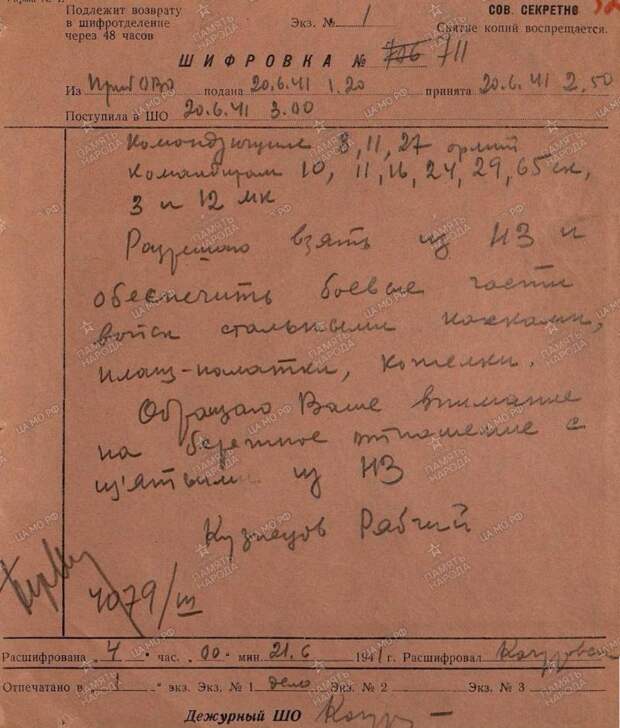 Подлежит возврату
в шифротделение
через 48 часов
Экз. № 1
СОВ. СЕКРЕТНО
Снятие копий воспрещается.
ШИФРОВКА № 706 711
Из ПрибОВО подана 20.6.41 1.20 принята 20.6.41 2.50
Поступила в ШО 20.6.41 3.00
Командующие 8, 11, 27 армий
Командирам 10, 11, 16, 24, 29, 65 ск,
3 и 12 мк
Разрешаю взять из НЗ и
обеспечить боевые части
войск стальными касками,
плащ-палатки, котелки.
Обращаю Ваше внимание
на бережное отношение с
из'ятыми из НЗ
Кузнецов Рябчий
4079/ш
Расшифрована 4 час. 00 мин. 21.6 1941 г. Расшифровал
Отпечатано в 1 экз. Экз. № 1 дело Экз. № 2 Экз. № 3
Дежурный ШО
ПАМЯТЬ НАРОДА
ЦА.МО.РФ